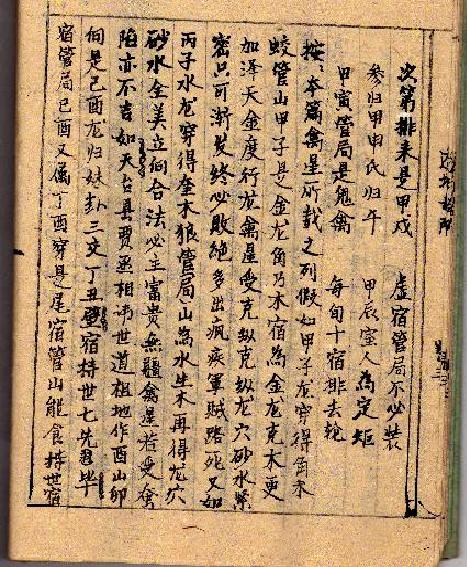 次第排来是甲戌 虚宿管局不必装
参归甲申氐归午 甲辰室人为定矩
甲寅管局是鬼禽 每旬十宿排去轮
按本篇禽星所载之列假如甲子龙穿得角木
蛟管山甲子是金龙角乃木宿为金龙克木更
如泽天金度行龙禽星受克纵龙穴砂水紧
密只可渐发终必败绝多出疯疾军贼路死又如
丙子水龙穿得奎木狼管局山为水生木再得龙穴
砂水全美立向合法必主富贵無疑禽星若受禽
陷亦不吉如天台县贾丞相讳世道祖地作酉山卯
向是己酉龙归妹卦三爻丁丑宿持世七先君毕
宿管局己酉又属丁酉穿是尾宿管山能食持世宿